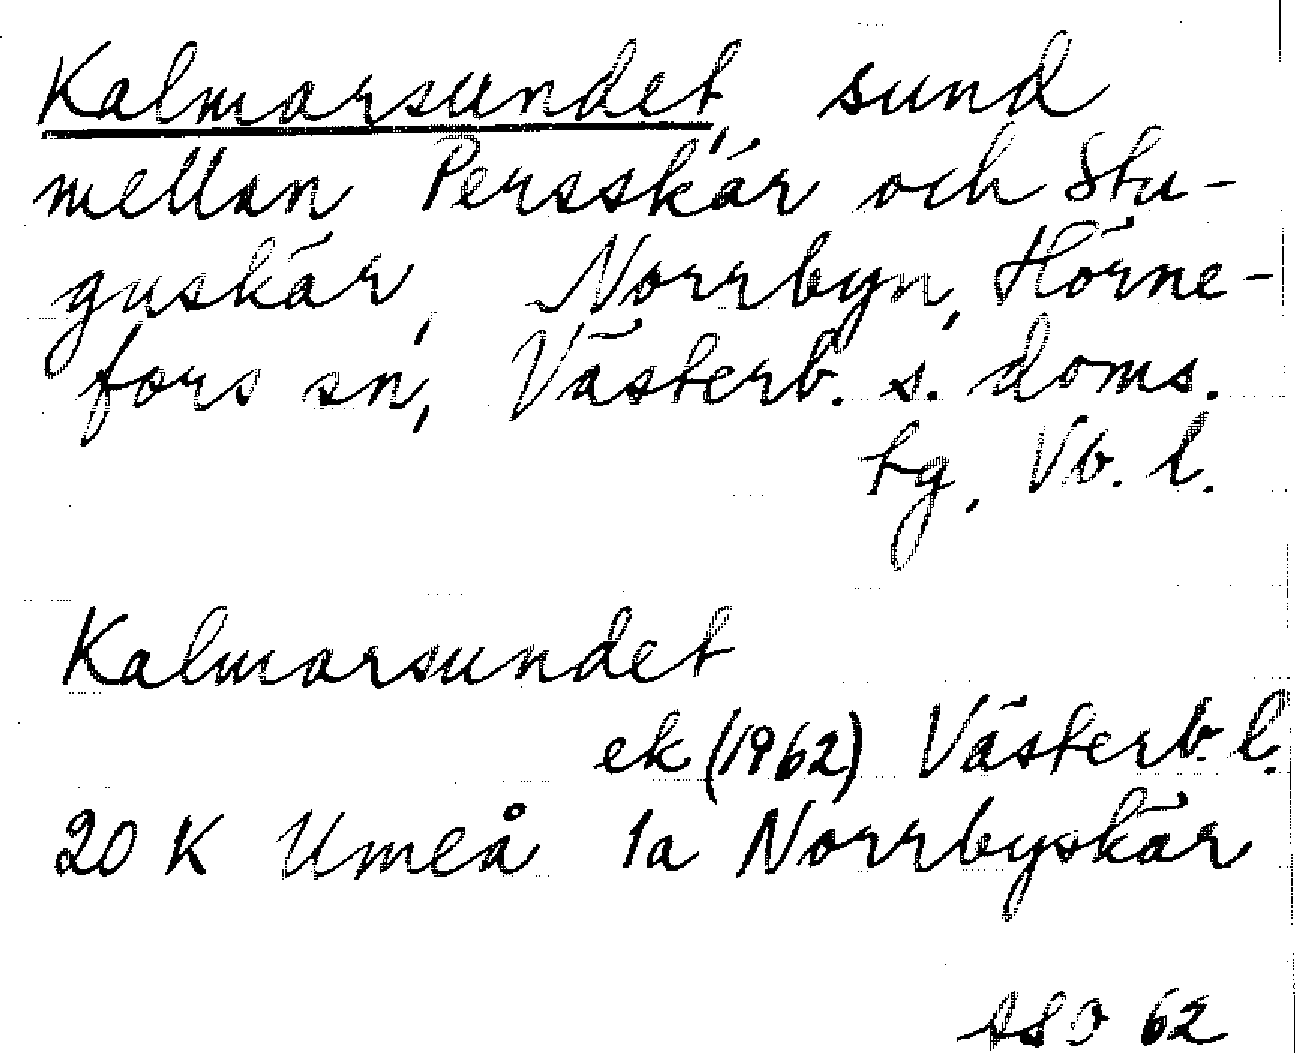 Kalmarsundet, sund
mellan Persskär och Stu-
guskär, Norrbyn, Hörne-
fors sn, Västerb. s. doms.
tg, Vb. l.
Kalmarsundet
ek (1962) Västerb. l.
20 K Umeå 1a Norrbyskär
62